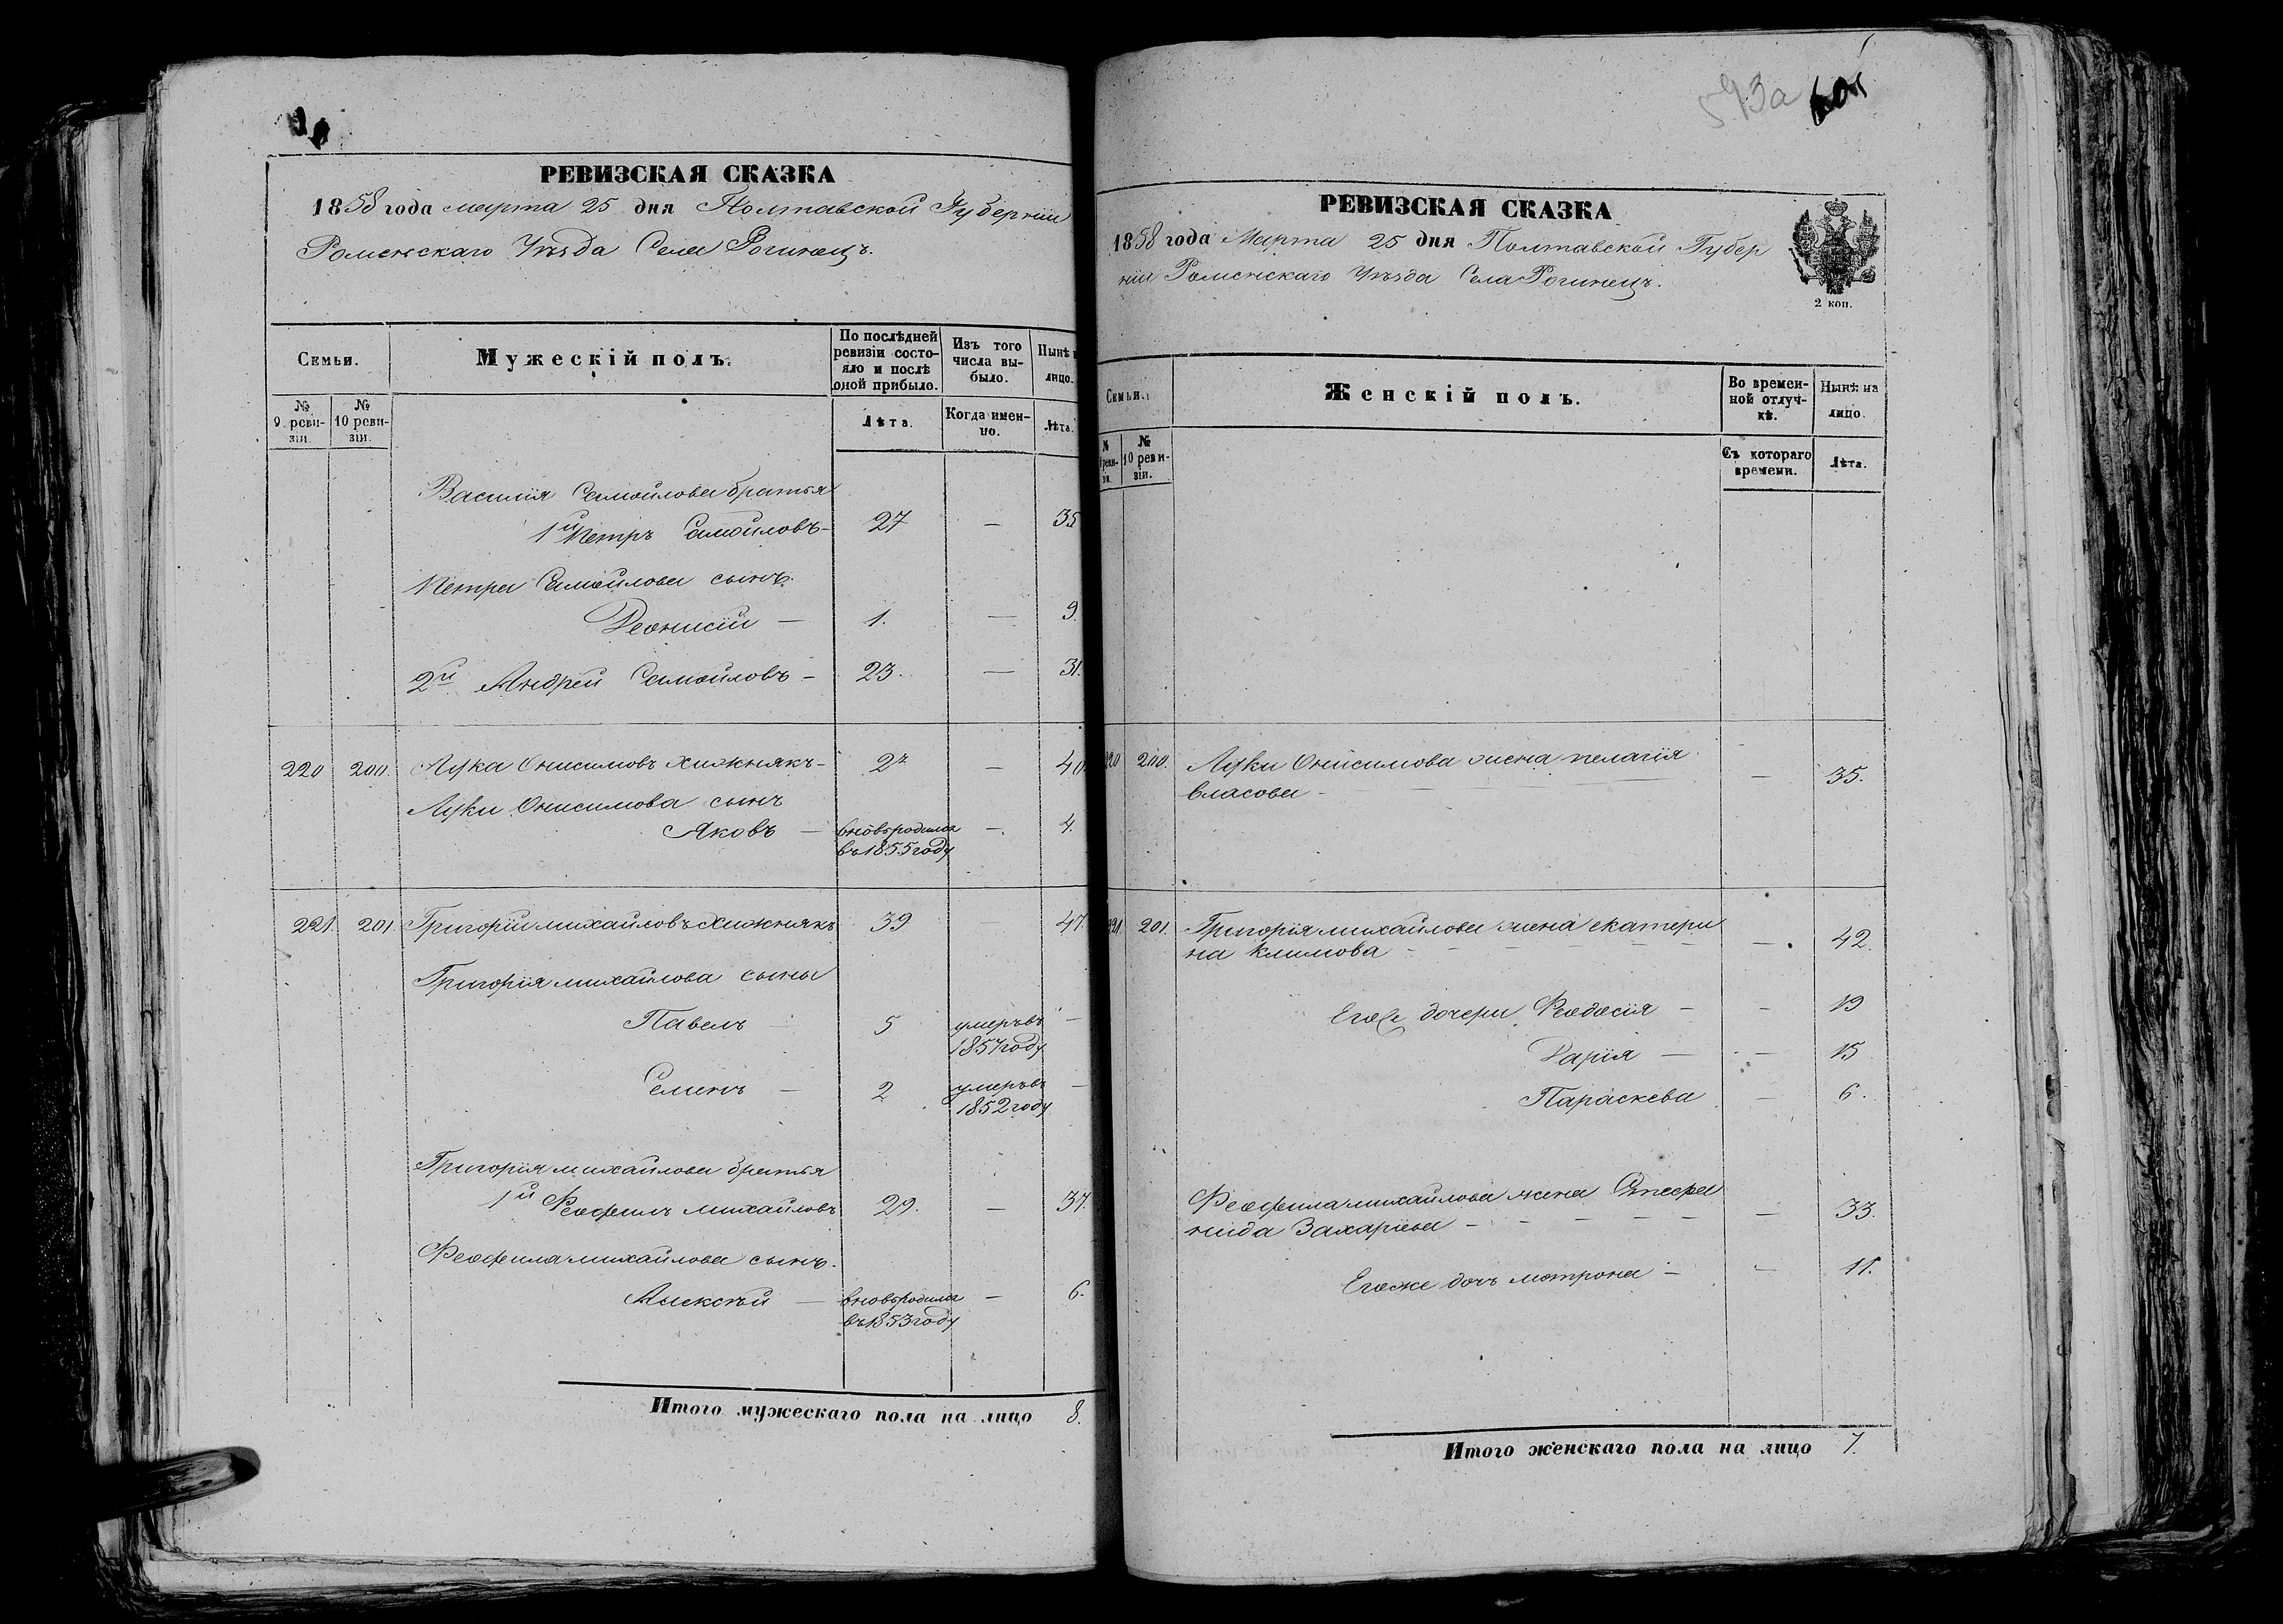 РЕВИЗСКАЯ СКАЗКА
1858 года марта 25 дня Полтавской Губернии
Роменскаго Уѣзда Села Рогинецъ.
Семьи.
Мужескій полъ.
По послѣдней ревизіи состояло и послѣ оной прибыло.
Изъ того числа выбыло.
Нынѣ
лицо.
№ 9 ревизіи.
№ 10 ревизіи.
Лѣта.
Когда именно.
Лѣта.
Василія Самойлова братья
1й Петръ Самойловъ - 27 — 35
Петра Самойлова сынъ.
Деонисій — 1. — 9.
2й Андрей Самойловъ - 23. — 31.
220 200. Лука Онисимовъ Хижнякъ - — 40
Луки Онисимова сынъ
Яковъ — вновь родился —. 4.
въ 1855 году
221. 201. Григорій михайловъ Хижнякъ 39 — 47.
Григорія михайлова сыны
Павелъ 5 умеръ въ —
1857 году
Семенъ — 2 умеръ въ —
1852 году
Григорія михайлова братья
1й Феофилъ михайловъ 29. — 37.
Феофила михайлова сынъ.
Алексѣй — вновь родился — 6.
въ 1853 году
Итого мужескаго пола на лицо 8.
593а
РЕВИЗСКАЯ СКАЗКА
1858 года Марта 25 дня Полтавской Губер
ніи Роменскаго Уѣзда Села Рогинецъ.
2 коп.
Семьи.
Женскій полъ.
Во временной отлучкѣ.
Нынѣ на лицо.
№ 10 ревизіи.
Съ котораго времени.
Лѣта.
220 200. Луки Онисимова жена пелагія
власова - — 35.
221 201. Григорія михайлова жена екатери
на климова — 42.
Егоже дочери Феодосія — - 19
Дарія — — 15
Параскева — 6.
Феофила михайлова жена
нида Захаріева - — 33.
Егоже дочь мотрона — — 11.
Итого женскаго пола на лицо 7.